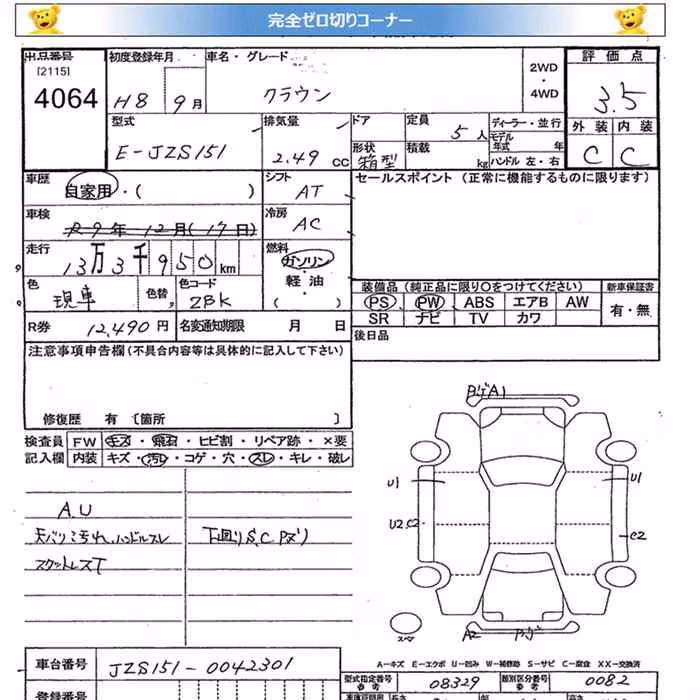 完全ゼロ切りコーナー
出品番号 初度登録年月 車名・グレード 2WD・4WD 評価点
[2115]
4064 H8 9月 クラウン 3.5
型式 排気量 ドア形状 定員 ディーラー・並行 外装 内装
E-JZS151 2.49 cc 箱型 5人 モデル年式 年 C C
積載 kg ハンドル 左・右
車歴 自家用・( ) シフト AT セールスポイント (正常に機能するものに限ります)
車検 R9年12月(17日) 冷房 AC
走行 13万3千950km 燃料 ガソリン・軽油・( )
色 現車 色替 色コード ZBK
装備品 (純正品に限り○をつけてください) 新車保証書
PS PW ABS エアB AW 有・無
R券 12,490円 名変通知期限 月 日 SR ナビ TV カワ
注意事項申告欄(不具合内容等は具体的に記入して下さい) 後日品
修復歴 有 〔箇所 〕
検査員 FW キズ・飛石・ヒビ割・リペア跡・×要
記入欄 内装 キズ・汚れ・コゲ・穴・スレ・キレ・破レ
A.U
天バリ汚れ,ハンドルスレ 下回りS,C
バンパーA1
U1 U1
U2 C2 C2
A2
A-キズ E-エクボ U-凹み W-補修跡 S-サビ C-腐食 XX-交換済
車台番号 JZS151-0042301
型式指定番号 参考 08329 類別区分番号 参考 0082
登録番号